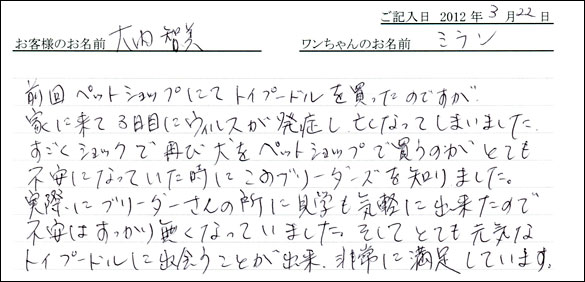 ご記入日 2012 年 3 月 22 日
お客様のお名前 大内 智美 ワンちゃんのお名前 ミラン
前回 ペットショップにて トイプードルを買ったのですが
家に来て3日目にウィルスが発症し、亡くなってしまいました。
すごくショックで再び犬をペットショップで買うのがとても
不安になっていた時にこのブリーダーズを知りました。
実際にブリーダーさんの所に見学も気軽に出来たので
不安はすっかり無くなっていました。そしてとても元気な
トイプードルに出会うことが出来、非常に満足しています。